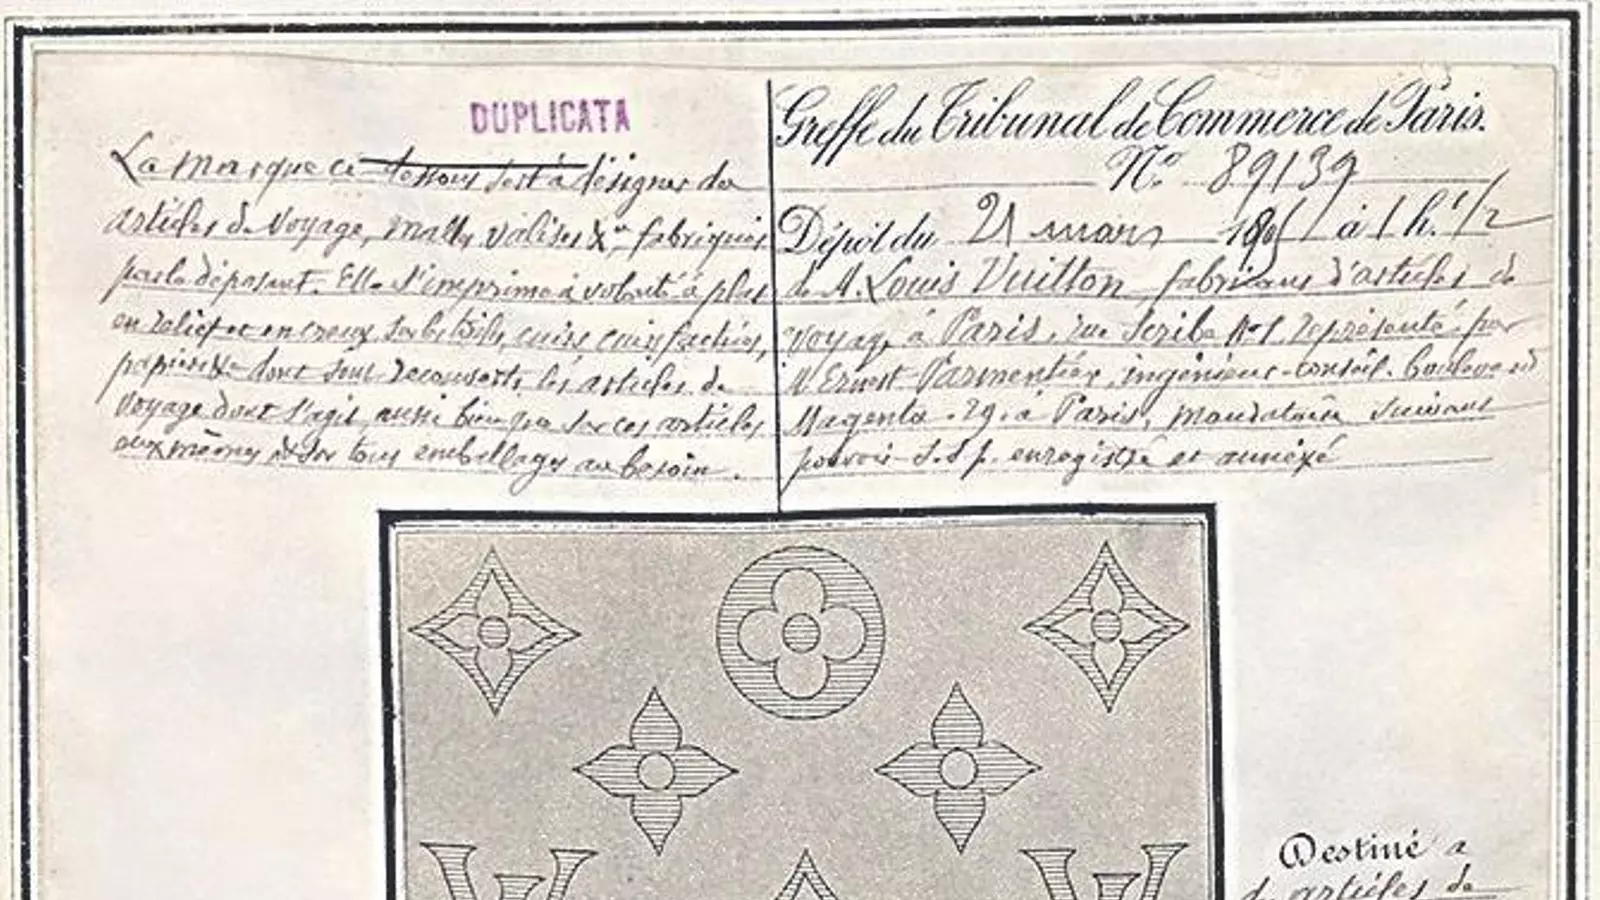 DUPLICATA
La marque ci-dessous sert à désigner des
articles de voyage, malles, valises &a fabriqués
par le déposant. Elle s'imprime à volonté à plat
en relief et en creux, sur les toiles, cuirs, cuirs factices,
papiers &a dont sont recouverts les articles de
voyage dont s'agit, aussi bien que sur ces articles
eux mêmes & sur tous emballages au besoin.
Greffe du Tribunal de Commerce de Paris.
No. 89139
Dépôt du 21 mars à 1 h. 1/2
de M. Louis Vuitton fabricant d'articles de
voyage à Paris, rue Scribe No 1, représenté par
M Ernest Parmentier, ingénieur-conseil, boulevard
Magenta 29, à Paris, mandataire suivant
pouvoir s.s.p. enregistré et annexé
Destiné a
articles de
LV LV